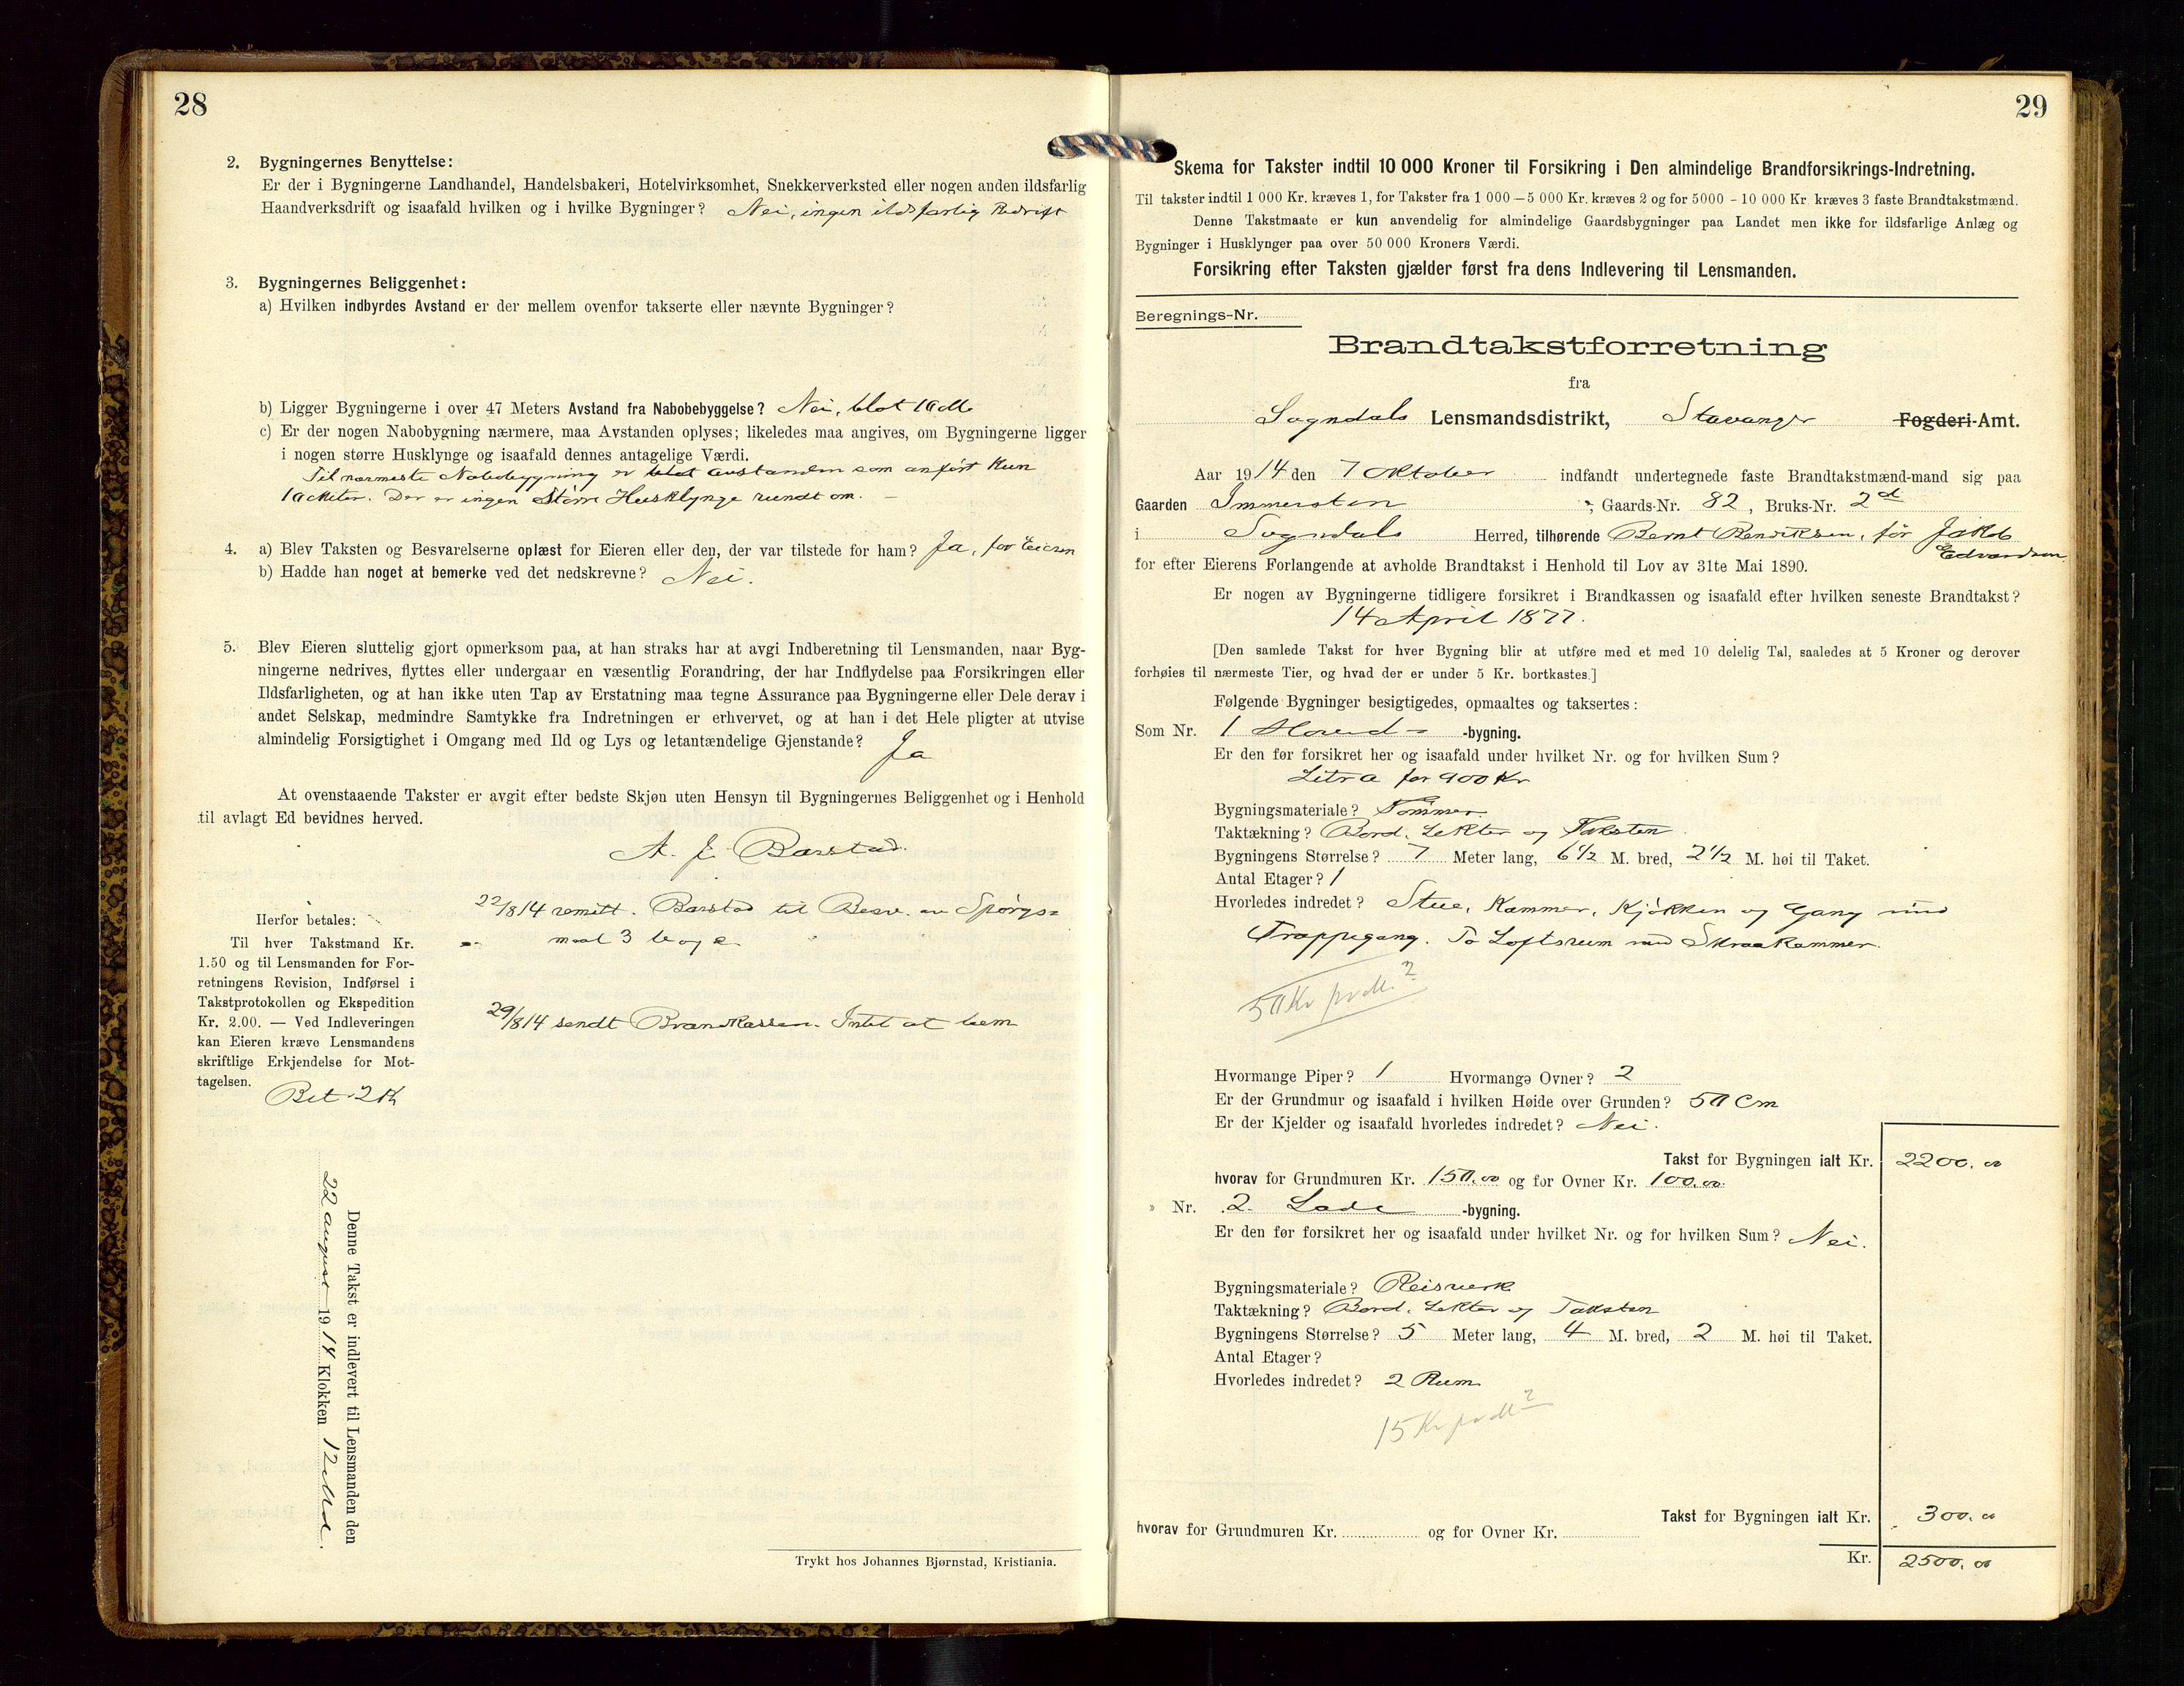 28
2. Bygningernes Benyttelse:
Er der i Bygningerne Landhandel, Handelsbakeri, Hotelvirksomhet, Snekkerverksted eller nogen anden ildsfarlig
Haandverksdrift og isaafald hvilken og i hvilke Bygninger? Nei, ingen ildsfarlig Bedrift
3. Bygningernes Beliggenhet:
a) Hvilken indbyrdes Avstand er der mellem ovenfor takserte eller nævnte Bygninger?
b) Ligger Bygningerne i over 47 Meters Avstand fra Nabobebyggelse? Nei, blot 10 M.
c) Er der nogen Nabobygning nærmere, maa Avstanden oplyses; likeledes maa angives, om Bygningerne ligger
i nogen større Husklynge og isaafald dennes antagelige Værdi.
Til nærmeste Nabobygning er blot avstanden som anført kun
10 Meter. Der er ingen Större Husklynge rundt om. —
4. a) Blev Taksten og Besvarelserne oplæst for Eieren eller den, der var tilstede for ham? Ja, for Eieren
b) Hadde han noget at bemerke ved det nedskrevne? Nei.
5. Blev Eieren sluttelig gjort opmerksom paa, at han straks har at avgi Indberetning til Lensmanden, naar Byg-
ningerne nedrives, flyttes eller undergaar en væsentlig Forandring, der har Indflydelse paa Forsikringen eller
Ildsfarligheten, og at han ikke uten Tap av Erstatning maa tegne Assurance paa Bygningerne eller Dele derav i
andet Selskap, medmindre Samtykke fra Indretningen er erhvervet, og at han i det Hele pligter at utvise
almindelig Forsigtighet i Omgang med Ild og Lys og letantændelige Gjenstande? Ja
At ovenstaaende Takster er avgit efter bedste Skjøn uten Hensyn til Bygningernes Beliggenhet og i Henhold
til avlagt Ed bevidnes herved.
A. J. Barstad.
22/8 14 remitt. Barstad til Besv. av Spörgs=
maal 3 b og c.
29/8 14 sendt Brandkassen. Intet at bem
Herfor betales:
Til hver Takstmand Kr.
1.50 og til Lensmanden for For-
retningens Revision, Indførsel i
Takstprotokollen og Ekspedition
Kr. 2.00. — Ved Indleveringen
kan Eieren kræve Lensmandens
skriftlige Erkjendelse for Mot-
tagelsen.
Bet 2 Kr
Denne Takst er indlevert til Lensmanden den
22 august 1914 Klokken 12 Md.
Trykt hos Johannes Bjørnstad, Kristiania.
29
Skema for Takster indtil 10 000 Kroner til Forsikring i Den almindelige Brandforsikrings-Indretning.
Til takster indtil 1 000 Kr. kræves 1, for Takster fra 1 000 — 5 000 Kr. kræves 2 og for 5000 - 10 000 Kr. kræves 3 faste Brandtakstmænd.
Denne Takstmaate er kun anvendelig for almindelige Gaardsbygninger paa Landet men ikke for ildsfarlige Anlæg og
Bygninger i Husklynger paa over 50 000 Kroners Værdi.
Forsikring efter Taksten gjælder først fra dens Indlevering til Lensmanden.
Beregnings-Nr.
Brandtakstforretning
fra
Sogndals Lensmandsdistrikt, Stavanger Fogderi-Amt.
Aar 1914 den 7 Oktober indfandt undertegnede faste Brandtakstmænd-mand sig paa
Gaarden Immersten, Gaards-Nr. 82, Bruks-Nr. 2 d
i Sogndals Herred, tilhørende Bernt Bendiksen, för Jakob
Edvardsen
for efter Eierens Forlangende at avholde Brandtakst i Henhold til Lov av 31te Mai 1890.
Er nogen av Bygningerne tidligere forsikret i Brandkassen og isaafald efter hvilken seneste Brandtakst?
14 April 1877.
[Den samlede Takst for hver Bygning blir at utføre med et med 10 delelig Tal, saaledes at 5 Kroner og derover
forhøies til nærmeste Tier, og hvad der er under 5 Kr. bortkastes.]
Følgende Bygninger besigtigedes, opmaaltes og taksertes:
Som Nr. 1 Hoved- -bygning.
Er den før forsikret her og isaafald under hvilket Nr. og for hvilken Sum?
Litr a for 900 Kr
Bygningsmateriale? Tömmer
Taktækning? Bord, Lekter og Taksten
Bygningens Størrelse? 7 Meter lang, 6 1/2 M. bred, 2 1/2 M. høi til Taket.
Antal Etager? 1
Hvorledes indredet? Stue, Kammer, Kjökken og Gang med
Trappegang. To Loftsrum med Skraakammer.
50 Kr pr M.²
Hvormange Piper? 1 Hvormange Ovner? 2
Er der Grundmur og isaafald i hvilken Høide over Grunden? 50 Cm
Er der Kjelder og isaafald hvorledes indredet? Nei.
Takst for Bygningen ialt Kr. 2200. 00
hvorav for Grundmuren Kr. 150. 00 og for Ovner Kr. 100. 00.
» Nr. 2. Lade -bygning.
Er den før forsikret her og isaafald under hvilket Nr. og for hvilken Sum? Nei.
Bygningsmateriale? Reisverk
Taktækning? Bord, Lekter og Taksten
Bygningens Størrelse? 5 Meter lang, 4 M. bred, 2 M. høi til Taket.
Antal Etager?
Hvorledes indredet? 2 Rum
15 Kr pr M²
Takst for Bygningen ialt Kr. 300. 00
hvorav for Grundmuren Kr. og for Ovner Kr.
Kr. 2500. 00